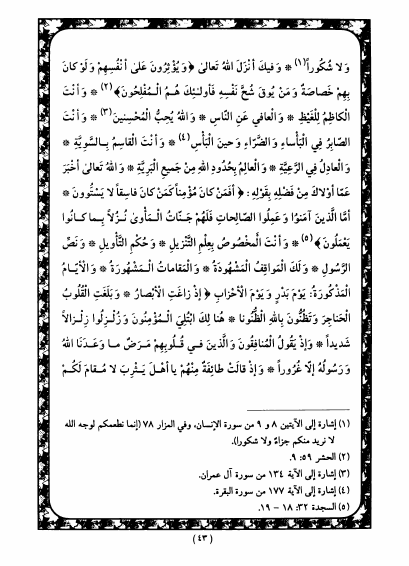 وَلا شُكُوراً(١) * وَفيكَ أَنْزَلَ اللهُ تَعالىٰ ﴿وَيُؤْثِرُونَ عَلىٰ أَنْفُسِهِمْ وَلَوْ كانَ
بِهِمْ خَصاصَةٌ وَمَنْ يُوقَ شُحَّ نَفْسِهِ فَأُولٰئِكَ هُمُ الْمُفْلِحُونَ﴾(٢) * وَأَنْتَ
الْكاظِمُ لِلْغَيْظِ * وَالْعافي عَنِ النّاسِ * وَاللهُ يُحِبُّ الْمُحْسِنينَ(٣) * وَأَنْتَ
الصّابِرُ فِي الْبَأْساءِ وَالضَّرّاءِ وَحينَ الْبَأْسِ(٤) * وَأَنْتَ الْقاسِمُ بِالسَّوِيَّةِ *
وَالْعادِلُ فِي الرَّعِيَّةِ * وَالْعالِمُ بِحُدُودِ اللهِ مِنْ جَميعِ الْبَرِيَّةِ * وَاللهُ تَعالىٰ أَخْبَرَ
عَمّا أَوْلاكَ مِنْ فَضْلِهِ بِقَوْلِهِ: ﴿ أَفَمَنْ كانَ مُؤْمِناً كَمَنْ كانَ فاسِقاً لا يَسْتَوُونَ *
أَمَّا الَّذينَ آمَنُوا وَعَمِلُوا الصّالِحاتِ فَلَهُمْ جَنّاتُ الْمَأْوىٰ نُزُلاً بِما كانُوا
يَعْمَلُونَ﴾(٥) * وَأَنْتَ الْمَخْصُوصُ بِعِلْمِ التَّنْزيلِ * وَحُكْمِ التَّأْويلِ * وَنَصِّ
الرَّسُولِ * وَلَكَ الْمَواقِفُ الْمَشْهُودَةُ * وَالْمَقاماتُ الْمَشْهُورَةُ * وَالْأَيّامُ
الْمَذْكُورَةُ: يَوْمَ بَدْرٍ وَيَوْمَ الْأَحْزابِ ﴿ إِذْ زاغَتِ الْأَبْصارُ * وَبَلَغَتِ الْقُلُوبُ
الْحَناجِرَ وَتَظُنُّونَ بِاللهِ الظُّنُونا * هُنا لِكَ ابْتُلِيَ الْمُؤْمِنُونَ وَزُلْزِلُوا زِلْزالاً
شَديداً * وَإِذْ يَقُولُ الْمُنافِقُونَ وَالَّذينَ في قُلُوبِهِمْ مَرَضٌ ما وَعَدَنَا اللهُ
وَرَسُولُهُ إِلّا غُرُوراً * وَإِذْ قالَتْ طائِفَةٌ مِنْهُمْ يا أَهْلَ يَثْرِبَ لا مُقامَ لَكُمْ
(١) إشارة إلى الآيتين ٨ و ٩ من سورة الإنسان، وفي المزار ٧٨ (إنما نطعمكم لوجه الله
لا نريد منكم جزاءً ولا شكورا).
(٢) الحشر ٥٩: ٩.
(٣) إشارة إلى الآية ١٣٤ من سورة آل عمران.
(٤) إشارة إلى الآية ١٧٧ من سورة البقرة.
(٥) السجدة ٣٢: ١٨ – ١٩.
(٤٣)